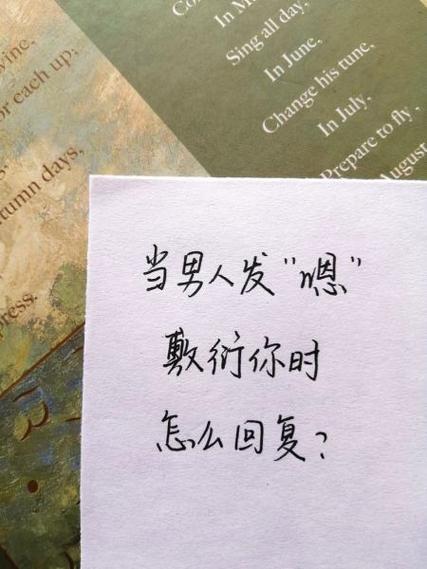 vine,
or each up;
tumn days,
press.
In M
Sing all day,
In June,
Change his tune,
In July,
Prepare to fly,
August
当男人发“嗯”
敷衍你时
怎么回复？